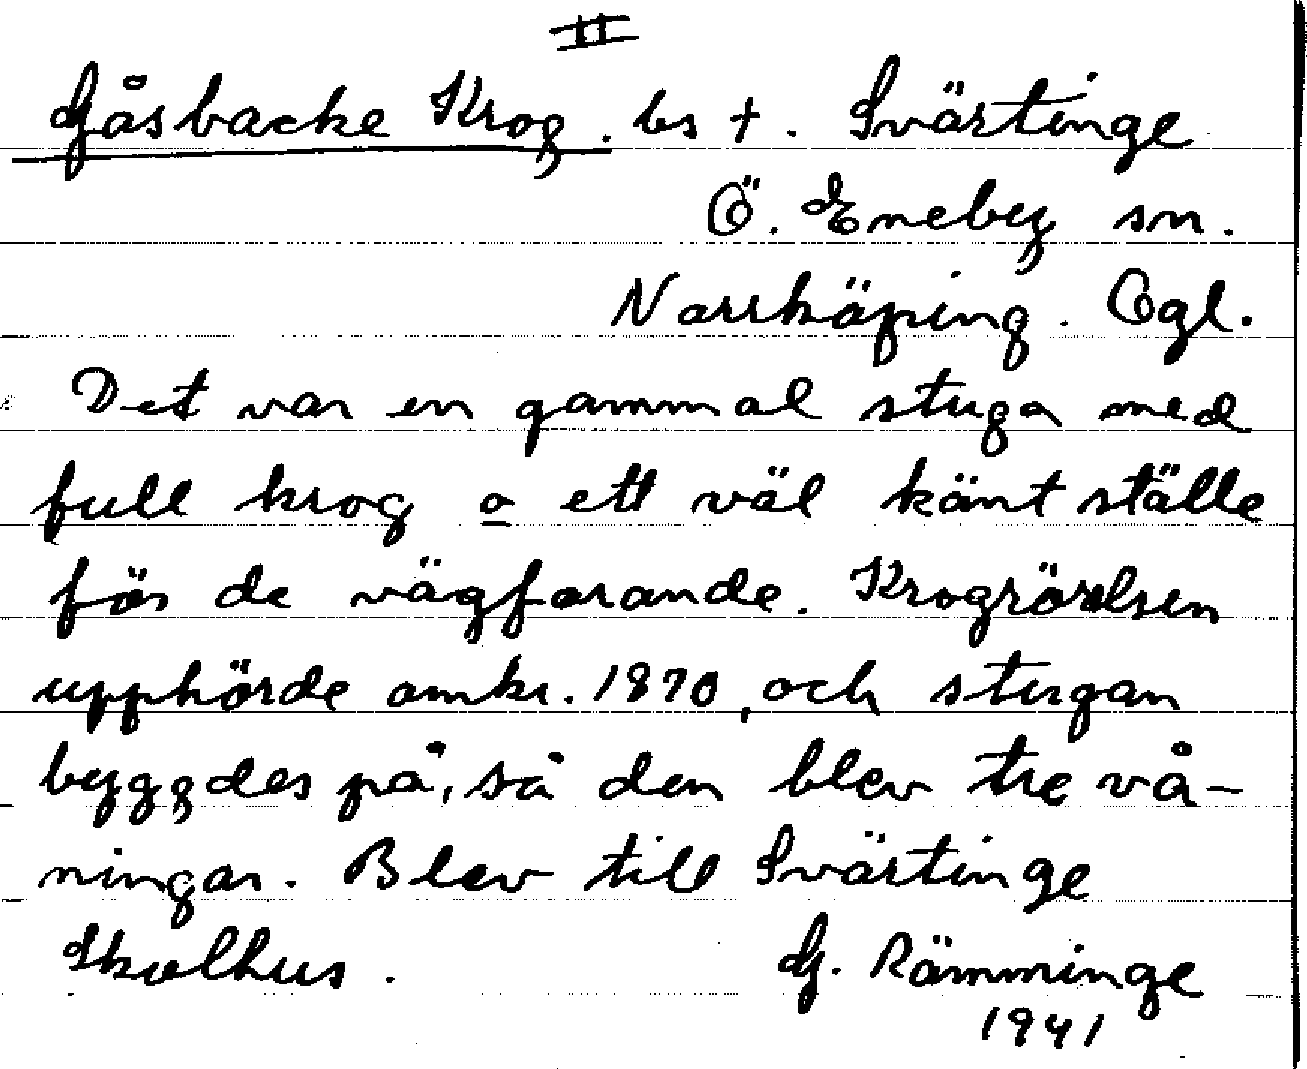 II
Gåsbacke Krog. bs †. Svärtinge
Ö. Eneby sn.
Norrköping. Ögl.
Det var en gammal stuga med
full krog o ett väl känt ställe
för de vägfarande. Krogrörelsen
upphörde omkr. 1870, och stugan
byggdes på, så den blev tre vå-
ningar. Blev till Svärtinge
Skolhus.
G. Rämminge
1941